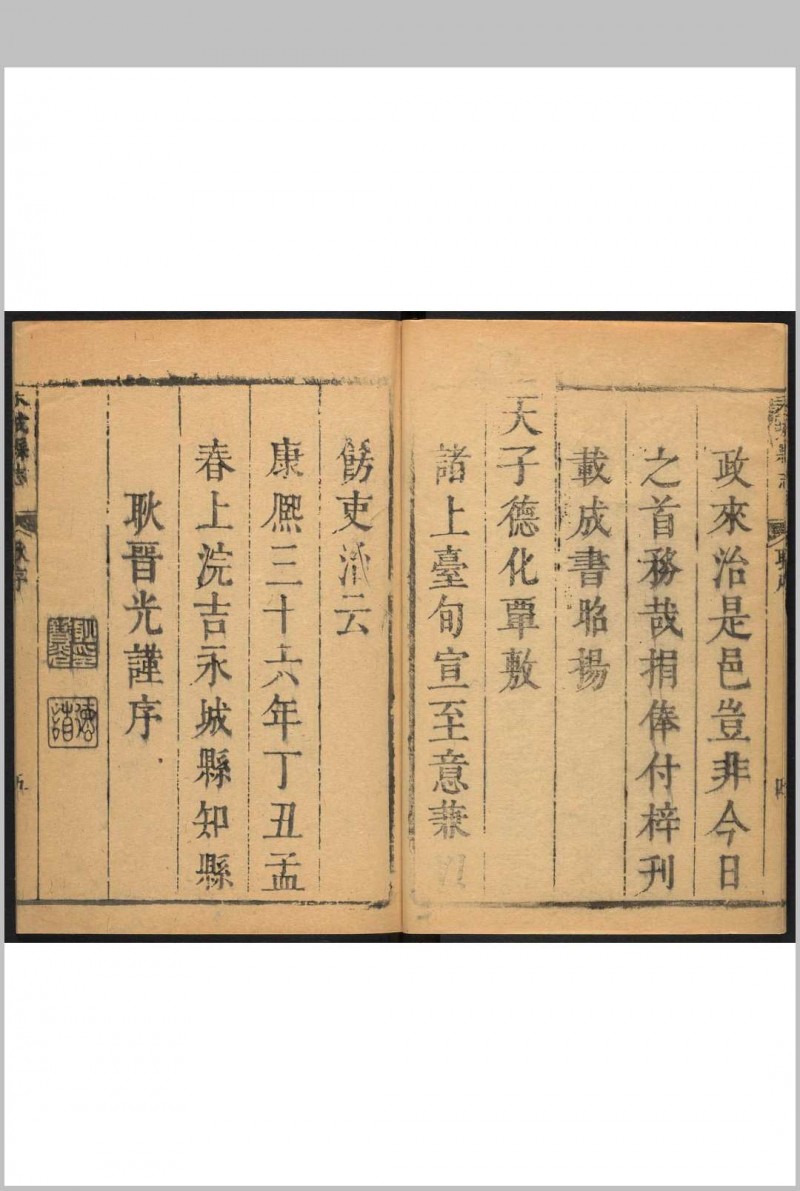 政來治是邑豈非今日
之首務哉捐俸付梓刊
載成書昭揚
天子德化覃敷
諸上臺旬宣至意兼
飭吏治云
康熈三十六年丁丑孟
春上浣吉永城縣知縣
耿晋光謹序